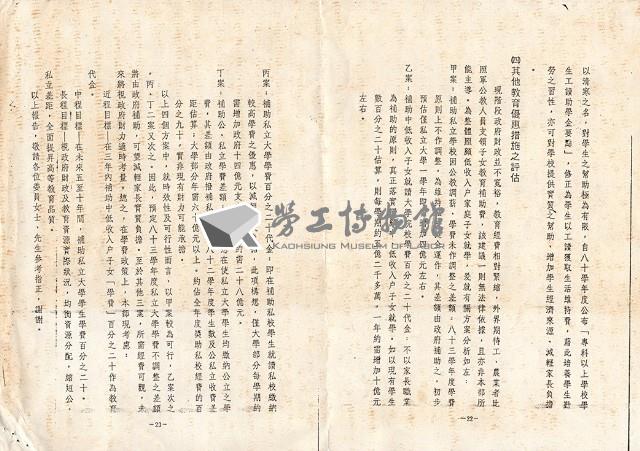 以清寒之名,對學生之幫助極為有限,自八十學年度公布「專科以上學校學
生工讀助學金要點」,修正為學生以工讀獲取生活維持費,藉此培養學生勤
勞之習性,亦可對學校提供實質之幫助,增加學生經濟來源、減輕家長負擔
。
四其他教育優惠措施之評估
現階段政府財政並不寬裕,教育經費相對緊縮,外界期待工、農業者比
照軍公教人員支領子女教育補助費,該建議一則無法律依據,且亦非本部所
能主導,為整體照顧低收入戶家庭子女就學,爰就有關方案分析如左:
甲案:補助私立學校因公教調薪,學費未作調整之差額:八十三學年度學費
原則上不作調整,為維持
運作,其差額由政府補助之,初步
預估僅私立大學一學年即需
億元左右。
乙案:補助中低收入子女就讀大學院校學費百分之二十代金:不以家長職業
為補助的原則,真正落實
低收入戶子女就學,如以現有學生
數百分之二十估算,則每學期約
億二千多萬。一年約需增加十億元
左右。
—22—
丙案:補助私立大學學費百分之二十代金,即在補助私校學生就讀私校繳納
較高學費之優惠,以減
此項構想,僅大學部分每學期約
需增加政府十四億元支
需二十八億元。
丁案:補助公、私立學費差額
在使私立學生均繳納公立之學
費,其差額由政府撥補私
八十二學年度學生數及公私立收費差
距估算:大學部分年需六十億元以上,約佔全年度獎助私校經費的百
分之九十,實非現有財力可能承擔。
以上四個方案中,就時效性及可行性而言,以甲案較為可行,乙案次之
,丙、丁二案又次之。因此,預定八十三學年度私立大學學費不調整之差額
將由政府補助,可望減輕家長實質負擔;至於其他三案,所需經費可觀,未
來將視政府財力適時考量,總之,在學費政策上,本部現考慮:
近程目標—在三年內補助中低收入戶子女「學費」百分之二十作為教育
代金。
中程目標—在未來五至十年間,補助私立大學學生學費百分之二十。
長程目標—視政府財政及教育資源實際狀況,均衡資源分配,縮短公,
私立差距,全面提昇高等教育品質。
以上報告,敬請各位委員女士,先生參考指正,謝謝。
—23—
勞工博物館
KAOHSIUNG MUSEUM OF LABOR